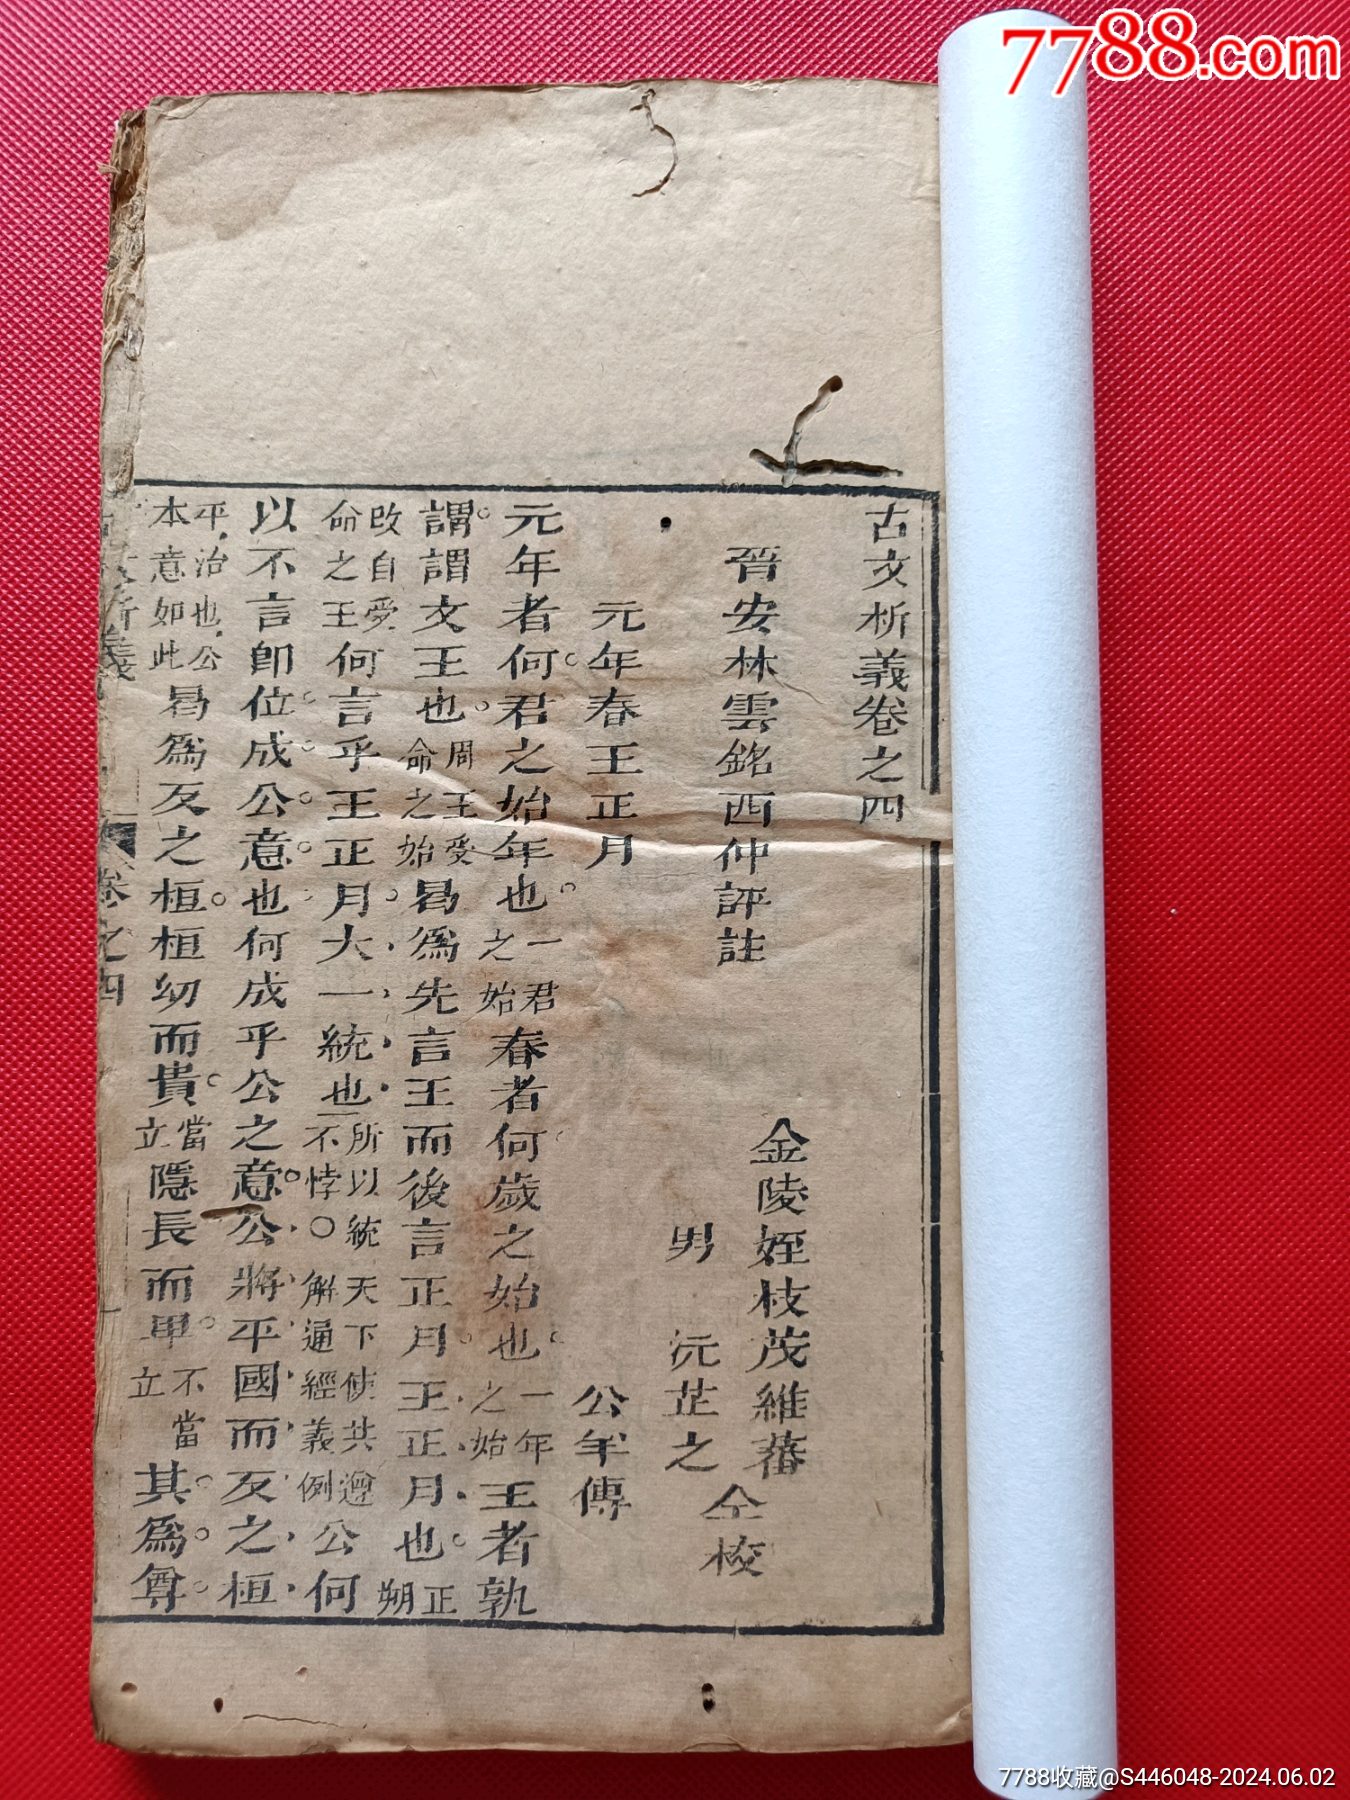 7788.com
古文析義卷之四
晉安林雲銘西仲評註
金陵姪枝茂維蕃
男 沅芷之
仝校
元年春王正月 公羊傳
元年者何君之始年也一君之始春者何歲之始也一年之始王者孰
謂謂文王也周王受命之始曷爲先言王而後言正月王正月也正朔
改自受命之王何言乎王正月大一統也所以統天下使共遵不悖○解通經義例公何
以不言卽位成公意也何成乎公之意公將平國而反之桓
平治也公本意如此曷爲反之桓桓幼而貴當立隱長而卑不當立其爲尊
義 卷之四
7788收藏@S446048-2024.06.02